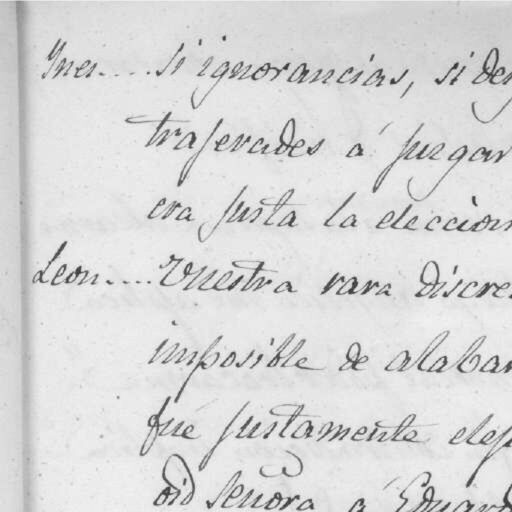 Ines.... si ignorancias, si de
traserades á juzgar
era justa la eleccion
Leon.... Vuestra rara discre
imposible de alabar
fué justamente
oid Señora á Eduard